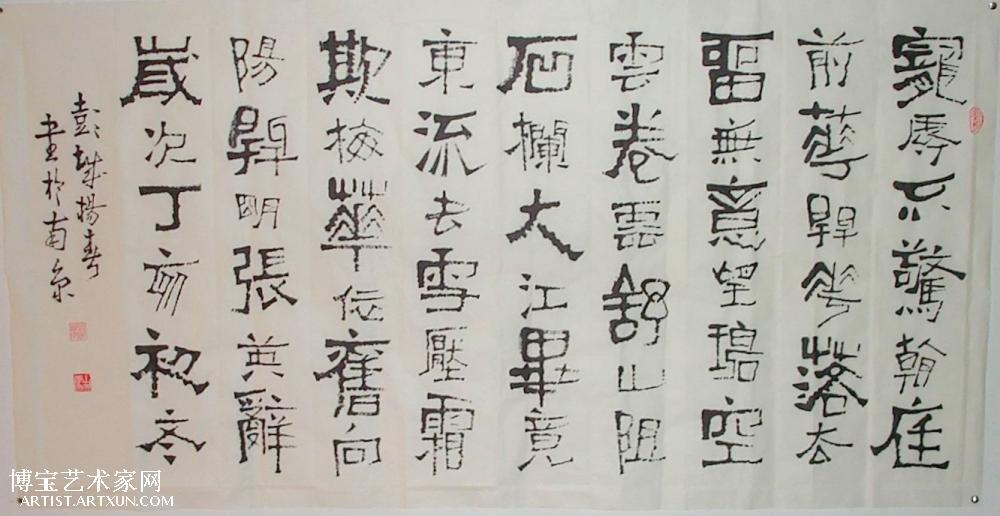 寵辱不驚看庭
前花開花落去
留無意望碧空
雲卷雲舒山阻
石欄大江畢竟
東流去雪壓霜
欺梅華依舊向
陽開明張英辭
歲次丁亥初冬
彭城楊春
書於南京
博宝艺术家网
ARTIST.ARTXUN.COM